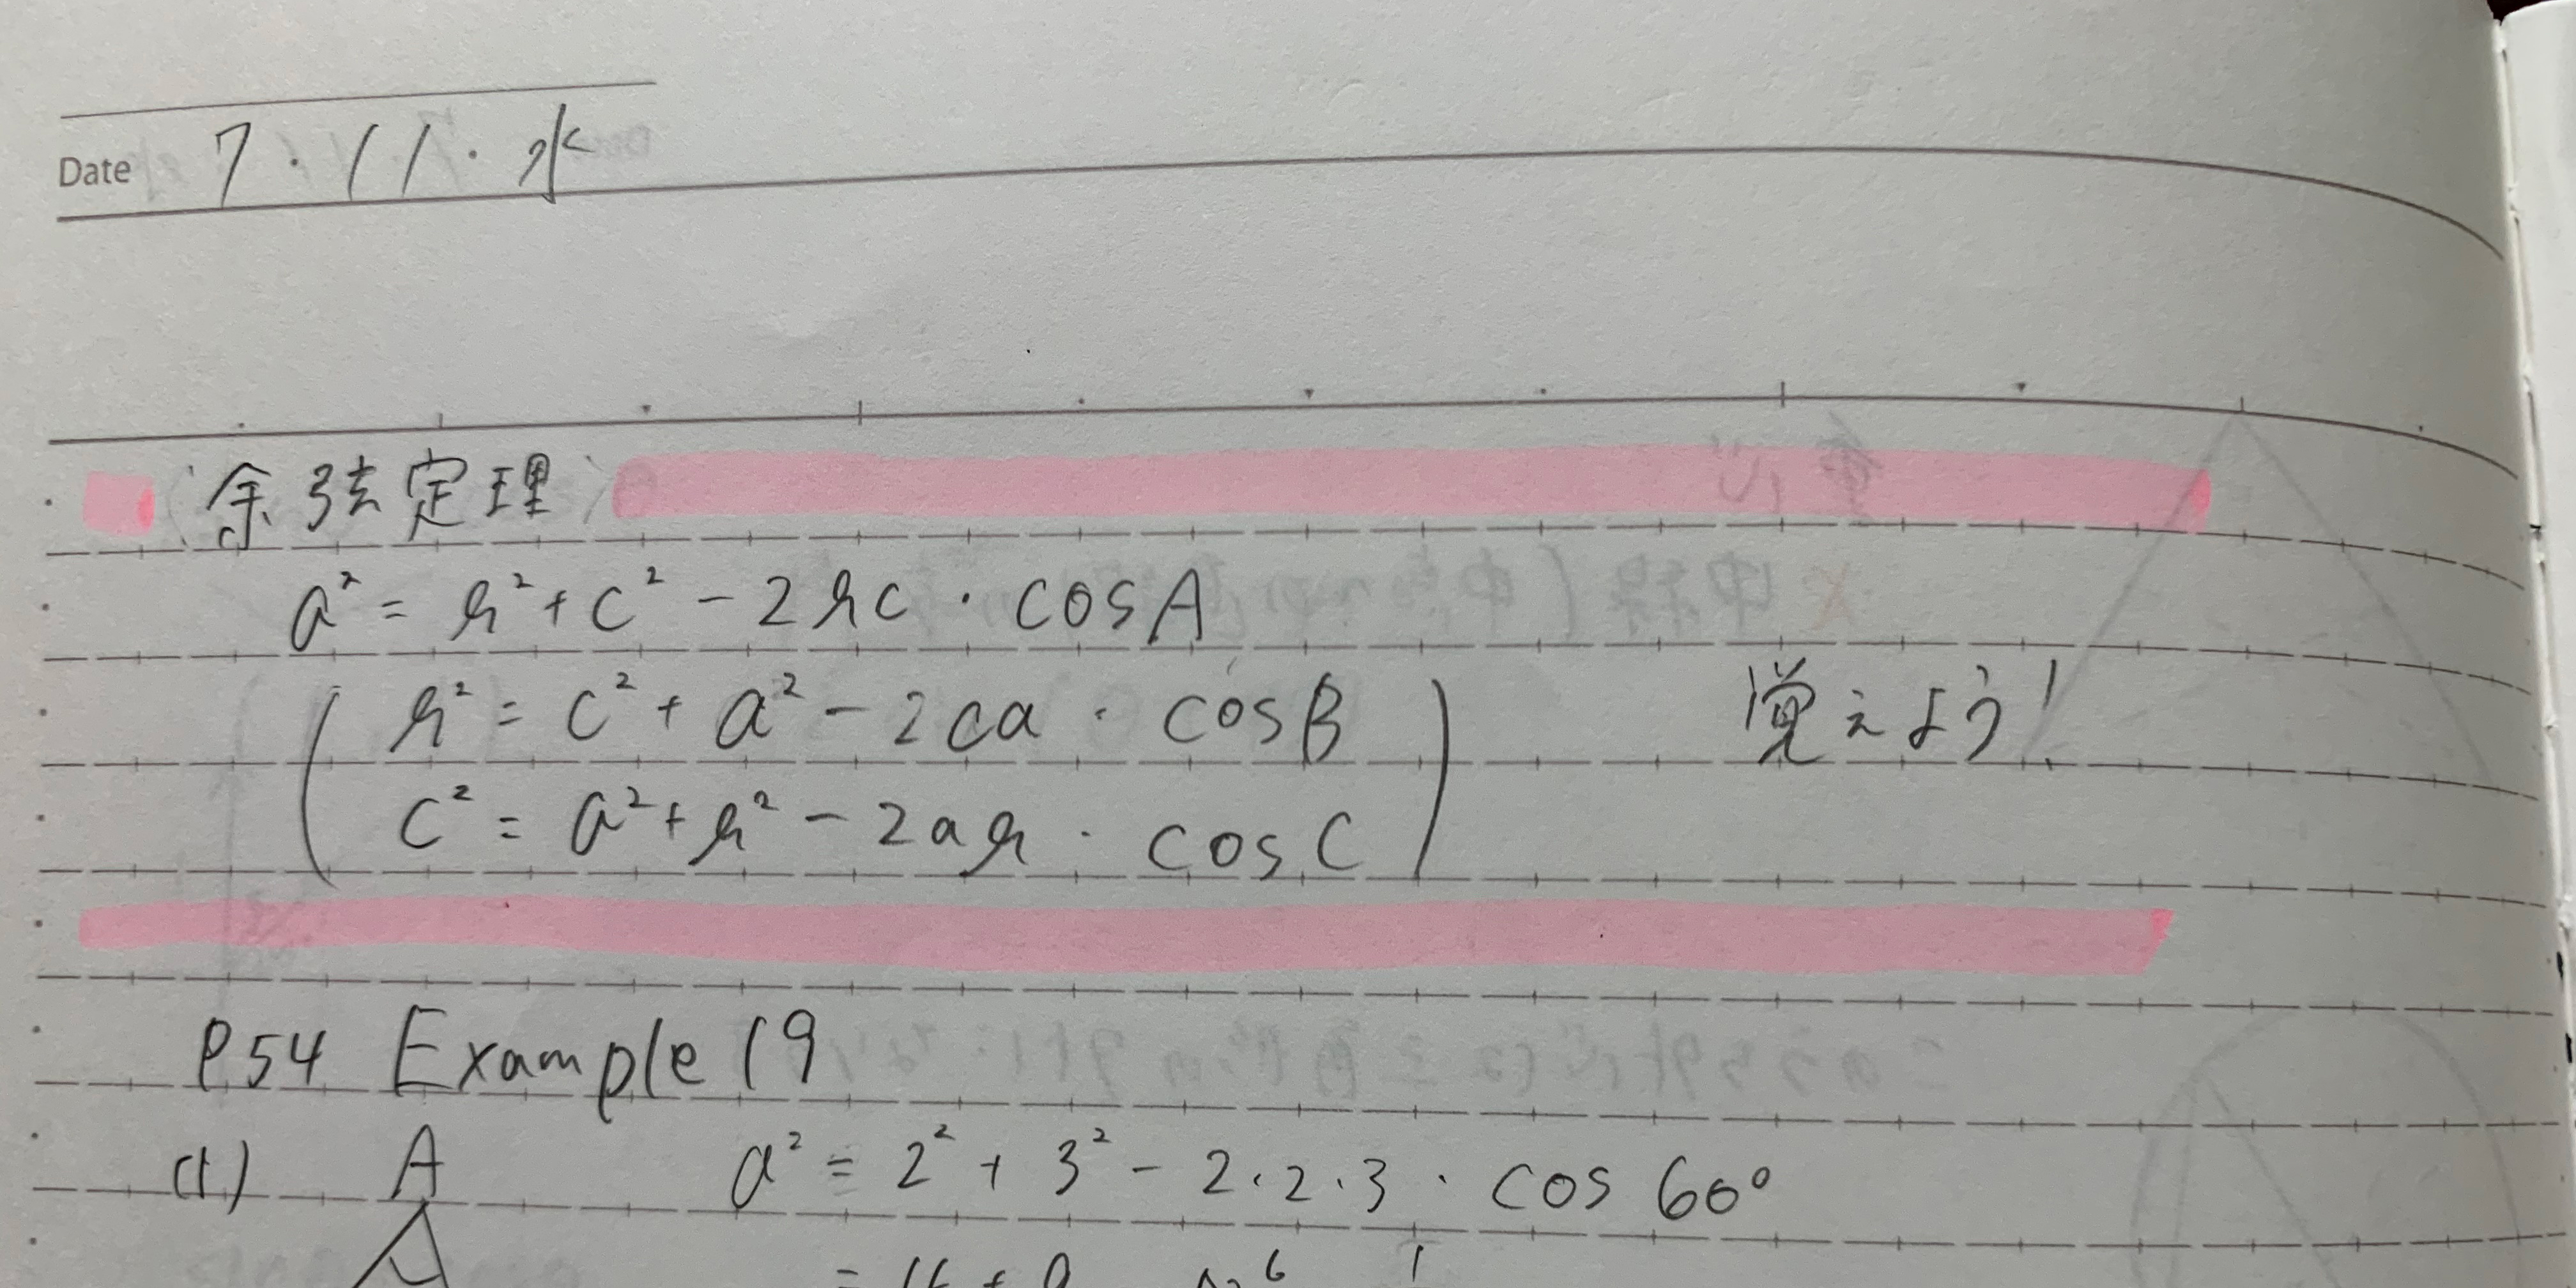 Date 7・11・水
余弦定理
a² = b² + c² - 2bc · cosA
( b² = c² + a² - 2ca · cosB
c² = a² + b² - 2ab · cosC )
覚えよう!
P54 Example 19
(1) A a² = 2² + 3² - 2·2·3 · cos 60°